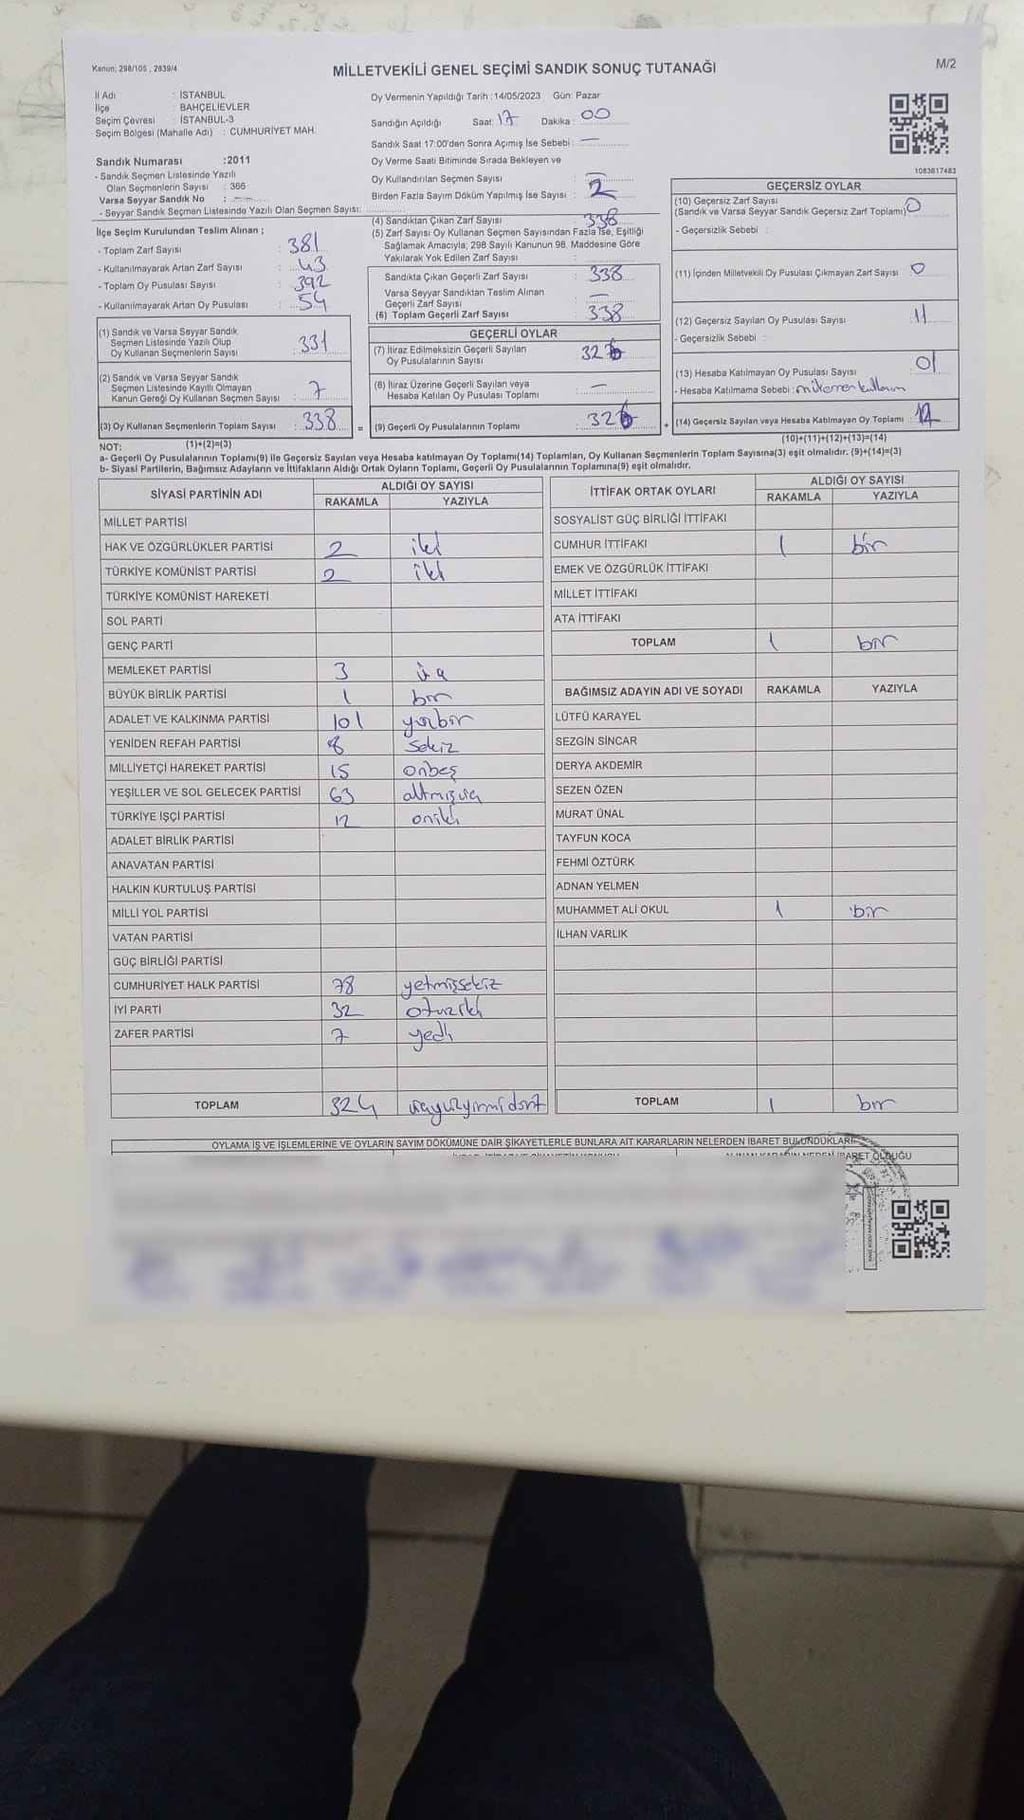 Kanun: 298/105 , 2839/4
MİLLETVEKİLİ GENEL SEÇİMİ SANDIK SONUÇ TUTANAĞI
M/2
İl Adı : İSTANBUL
İlçe : BAHÇELİEVLER
Seçim Çevresi : İSTANBUL-3
Seçim Bölgesi (Mahalle Adı) : CUMHURİYET MAH.
Sandık Numarası :2011
- Sandık Seçmen Listesinde Yazılı
Olan Seçmenlerin Sayısı : 366
Varsa Seyyar Sandık No : -
- Seyyar Sandık Seçmen Listesinde Yazılı Olan Seçmen Sayısı:
İlçe Seçim Kurulundan Teslim Alınan ;
- Toplam Zarf Sayısı : 381
- Kullanılmayarak Artan Zarf Sayısı : 43
- Toplam Oy Pusulası Sayısı : 392
- Kullanılmayarak Artan Oy Pusulası : 54
(1) Sandık ve Varsa Seyyar Sandık
Seçmen Listesinde Yazılı Olup
Oy Kullanan Seçmenlerin Sayısı : 331
(2) Sandık ve Varsa Seyyar Sandık
Seçmen Listesinde Kayıtlı Olmayan
Kanun Gereği Oy Kullanan Seçmen Sayısı : 7
(3) Oy Kullanan Seçmenlerin Toplam Sayısı : 338
Oy Vermenin Yapıldığı Tarih :14/05/2023 Gün: Pazar
Sandığın Açıldığı Saat: 17 Dakika : 00
Sandık Saat 17:00'den Sonra Açımış İse Sebebi : —
Oy Verme Saati Bitiminde Sırada Bekleyen ve
Oy Kullandırılan Seçmen Sayısı : —
Birden Fazla Sayım Döküm Yapılmış İse Sayısı : 2
(4) Sandıktan Çıkan Zarf Sayısı : 338
(5) Zarf Sayısı Oy Kullanan Seçmen Sayısından Fazla İse, Eşitliği
Sağlamak Amacıyla, 298 Sayılı Kanunun 98. Maddesine Göre
Yakılarak Yok Edilen Zarf Sayısı :
Sandıkta Çıkan Geçerli Zarf Sayısı : 338
Varsa Seyyar Sandıktan Teslim Alınan
Geçerli Zarf Sayısı : —
(6) Toplam Geçerli Zarf Sayısı : 338
GEÇERLİ OYLAR
(7) İtiraz Edilmeksizin Geçerli Sayılan
Oy Pusulalarının Sayısı : 326
(8) İtiraz Üzerine Geçerli Sayılan veya
Hesaba Katılan Oy Pusulası Toplamı : —
= (9) Geçerli Oy Pusulalarının Toplamı : 326
1083617483
GEÇERSİZ OYLAR
(10) Geçersiz Zarf Sayısı
(Sandık ve Varsa Seyyar Sandık Geçersiz Zarf Toplamı) 0
- Geçersizlik Sebebi :
(11) İçinden Milletvekili Oy Pusulası Çıkmayan Zarf Sayısı : 0
(12) Geçersiz Sayılan Oy Pusulası Sayısı : 11
- Geçersizlik Sebebi :
(13) Hesaba Katılmayan Oy Pusulası Sayısı : 01
- Hesaba Katılmama Sebebi :
+ (14) Geçersiz Sayılan veya Hesaba Katılmayan Oy Toplamı : 12
NOT: (1)+(2)=(3)
(10)+(11)+(12)+(13)=(14)
a- Geçerli Oy Pusulalarının Toplamı(9) ile Geçersiz Sayılan veya Hesaba katılmayan Oy Toplamı(14) Toplamları, Oy Kullanan Seçmenlerin Toplam Sayısına(3) eşit olmalıdır. (9)+(14)=(3)
b- Siyasi Partilerin, Bağımsız Adayların ve İttifakların Aldığı Ortak Oyların Toplamı, Geçerli Oy Pusulalarının Toplamına(9) eşit olmalıdır.
SİYASİ PARTİNİN ADI
ALDIĞI OY SAYISI
RAKAMLA YAZIYLA
MİLLET PARTİSİ
HAK VE ÖZGÜRLÜKLER PARTİSİ 2 iki
TÜRKİYE KOMÜNİST PARTİSİ 2 iki
TÜRKİYE KOMÜNİST HAREKETİ
SOL PARTİ
GENÇ PARTİ
MEMLEKET PARTİSİ 3 üç
BÜYÜK BİRLİK PARTİSİ 1 bir
ADALET VE KALKINMA PARTİSİ 101 yüzbir
YENİDEN REFAH PARTİSİ 8 Sekiz
MİLLİYETÇİ HAREKET PARTİSİ 15 onbeş
YEŞİLLER VE SOL GELECEK PARTİSİ 63 altmışüç
TÜRKİYE İŞÇİ PARTİSİ 12 oniki
ADALET BİRLİK PARTİSİ
ANAVATAN PARTİSİ
HALKIN KURTULUŞ PARTİSİ
MİLLİ YOL PARTİSİ
VATAN PARTİSİ
GÜÇ BİRLİĞİ PARTİSİ
CUMHURİYET HALK PARTİSİ 78 yetmişsekiz
İYİ PARTİ 32 otuziki
ZAFER PARTİSİ 7 yedi
TOPLAM 324 üçyüzyirmidört
İTTİFAK ORTAK OYLARI
ALDIĞI OY SAYISI
RAKAMLA YAZIYLA
SOSYALİST GÜÇ BİRLİĞİ İTTİFAKI
CUMHUR İTTİFAKI 1 bir
EMEK VE ÖZGÜRLÜK İTTİFAKI
MİLLET İTTİFAKI
ATA İTTİFAKI
TOPLAM 1 bir
BAĞIMSIZ ADAYIN ADI VE SOYADI RAKAMLA YAZIYLA
LÜTFÜ KARAYEL
SEZGİN SİNCAR
DERYA AKDEMİR
SEZEN ÖZEN
MURAT ÜNAL
TAYFUN KOCA
FEHMİ ÖZTÜRK
ADNAN YELMEN
MUHAMMET ALİ OKUL 1 bir
İLHAN VARLIK
TOPLAM 1 bir
OYLAMA İŞ VE İŞLEMLERİNE VE OYLARIN SAYIM DÖKÜMÜNE DAİR ŞİKAYETLERLE BUNLARA AİT KARARLARIN NELERDEN İBARET BULUNDUKLARI
İBARET OLDUĞU